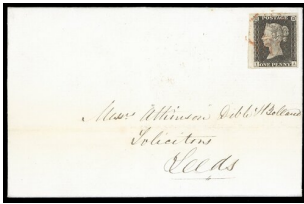 POSTAGE
ONE PENNY
Messrs Atkinson Dibb & Bolland
Solicitors
Leeds